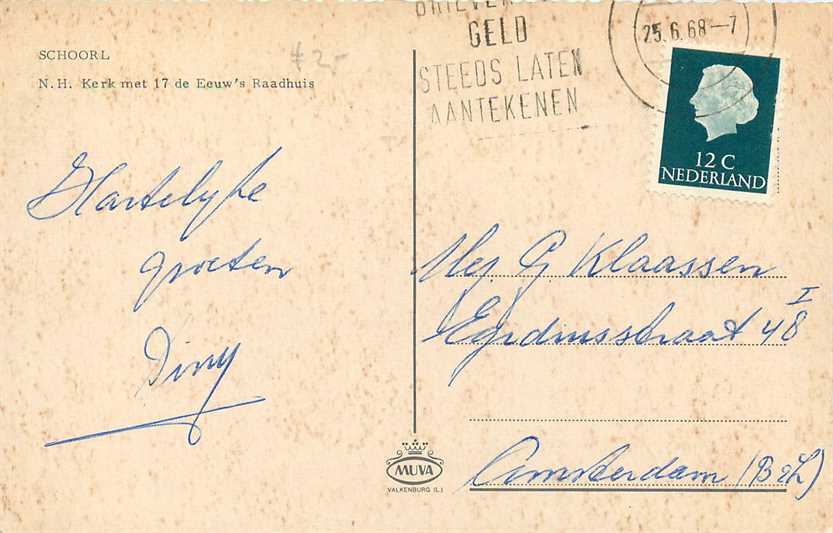 SCHOORL
N.H. Kerk met 17 de Eeuw's Raadhuis
ƒ 2,-
GELD
STEEDS LATEN
AANTEKENEN
25.6.68-7
12 C
NEDERLAND
Hartelyke
groeten
Diny
Mej G Klaassen
Egidiusstraat 48 I
Amsterdam (B&L)
MUVA
VALKENBURG (L.)